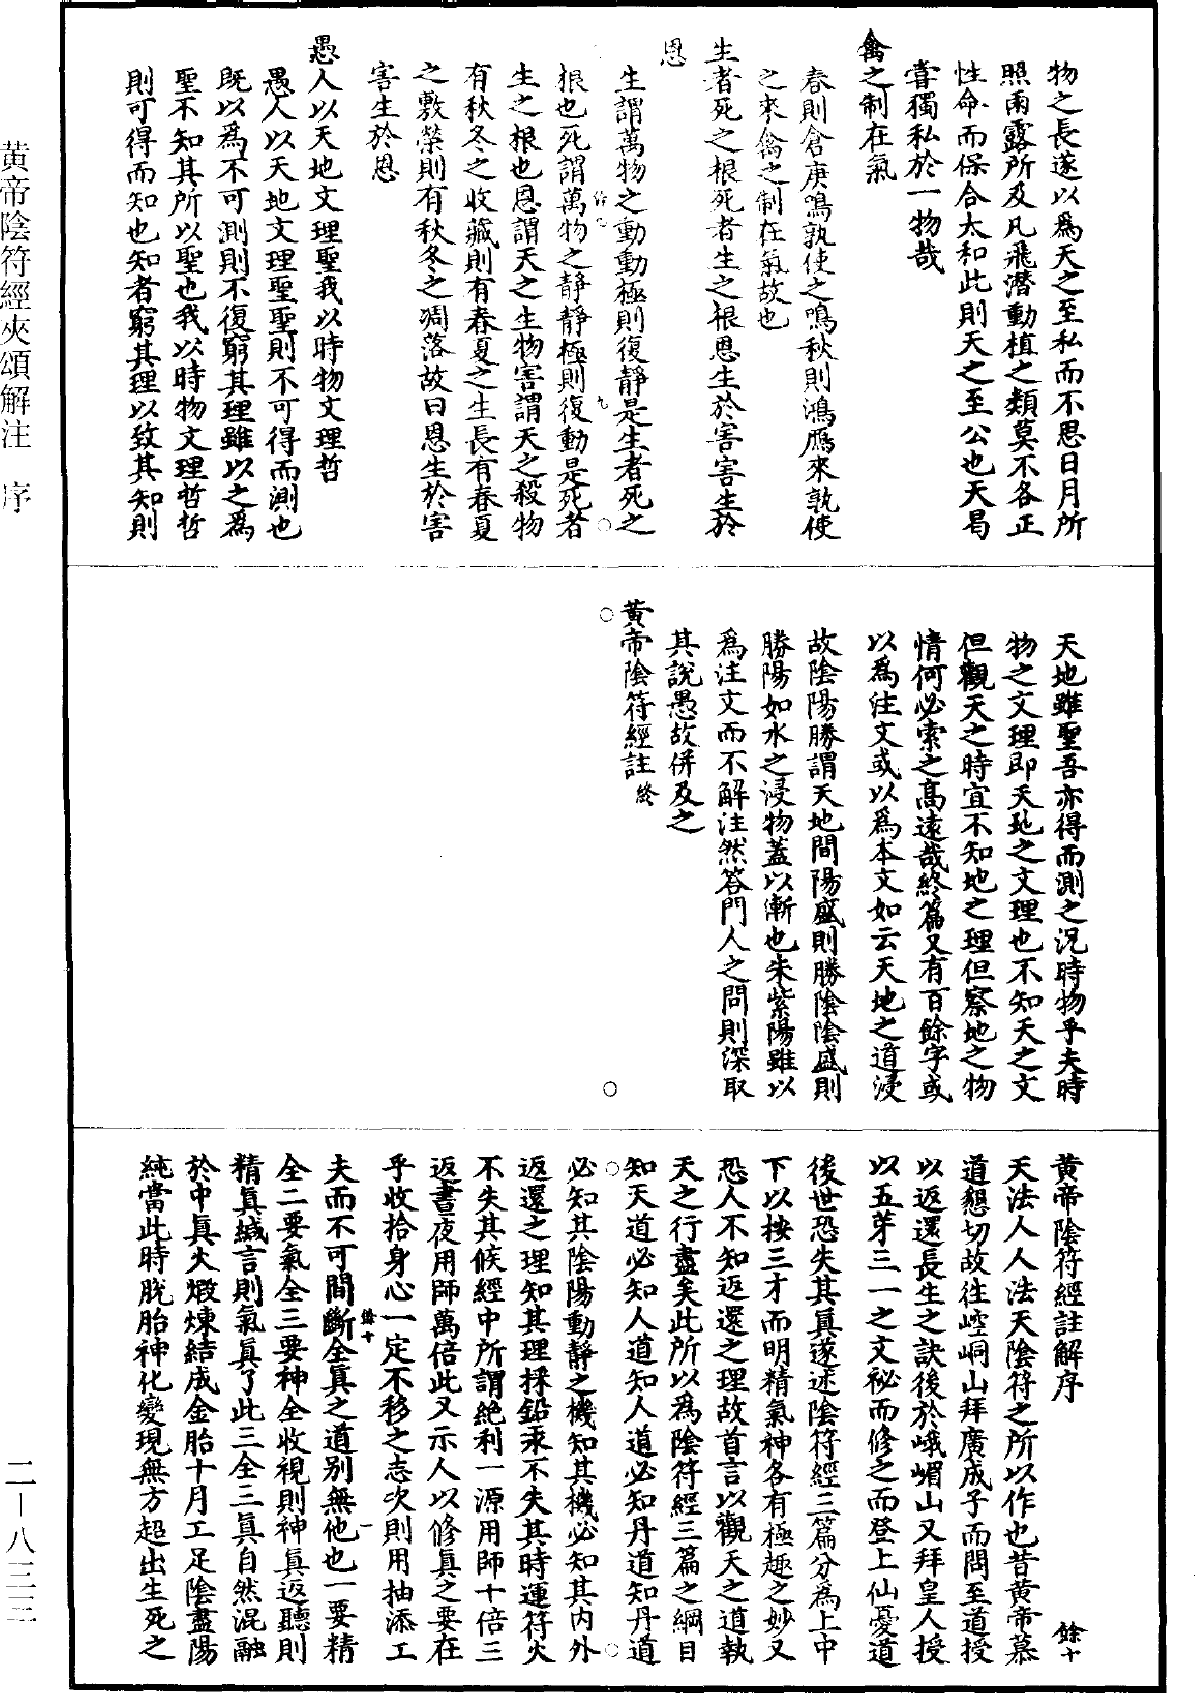 物之長遂以爲天之至私而不思日月所
照雨露所及凡飛潛動植之類莫不各正
性命而保合太和此則天之至公也天曷
嘗獨私於一物哉
禽之制在氣
春則倉庚鳴孰使之鳴秋則鴻鴈來孰使
之來禽之制在氣故也
生者死之根死者生之根恩生於害害生於
恩
生謂萬物之動動極則復靜是生者死之
根也死謂萬物之靜靜極則復動是死者
生之根也恩謂天之生物害謂天之殺物
有秋冬之收藏則有春夏之生長有春夏
之敷榮則有秋冬之凋落故曰恩生於害
害生於恩
愚人以天地文理聖我以時物文理哲
愚人以天地文理聖聖則不可得而測也
既以爲不可測則不復窮其理雖以之爲
聖不知其所以聖也我以時物文理哲哲
則可得而知也知者窮其理以致其知則
天地雖聖吾亦得而測之況時物乎夫時
物之文理即天地之文理也不知天之文
但觀天之時宜不知地之理但察地之物
情何必索之高遠哉終篇又有百餘字或
以爲注文或以爲本文如云天地之道浸
故陰陽勝謂天地間陽盛則勝陰陰盛則
勝陽如水之浸物蓋以漸也朱紫陽雖以
爲注文而不解注然答門人之問則深取
其說愚故併及之
黃帝陰符經註終
黃帝陰符經註解序
餘十
天法人人法天陰符之所以作也昔黃帝慕
道懇切故往崆峒山拜廣成子而問至道授
以返還長生之訣後於峨嵋山又拜皇人授
以五芽三一之文祕而修之而登上仙憂道
後世恐失其眞遂述陰符經三篇分爲上中
下以按三才而明精氣神各有極趣之妙又
恐人不知返還之理故首言以觀天之道執
天之行盡矣此所以爲陰符經三篇之綱目
知天道必知人道知人道必知丹道知丹道
必知其陰陽動靜之機知其機必知其內外
返還之理知其理採鉛汞不失其時運符火
不失其候經中所謂絶利一源用師十倍三
返晝夜用師萬倍此又示人以修眞之要在
乎收拾身心一定不移之志次則用抽添工
餘十
一
夫而不可間斷全眞之道別無他也一要精
全二要氣全三要神全收視則神眞返聽則
精眞緘言則氣眞了此三全三眞自然混融
於中眞火煅煉結成金胎十月工足陰盡陽
純當此時脫胎神化變現無方超出生死之
黃帝陰符經夾頌解注 序
二—八三三